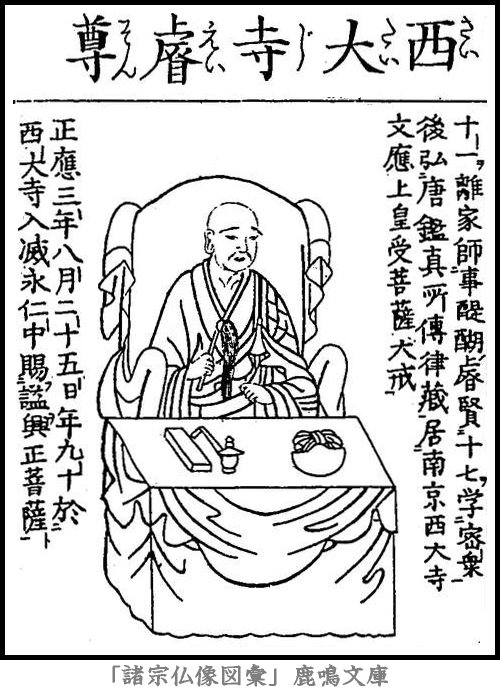 西大寺睿尊
さいだいじえいそん
十一離家師事醍醐睿賢十七学密衆
後弘唐鑑真所傳律藏居南京西大寺
文應上皇受菩薩大戒
正應三年八月二十五日年九十於
西大寺入滅永仁中賜謚興正菩薩
「諸宗仏像図彙」鹿鳴文庫